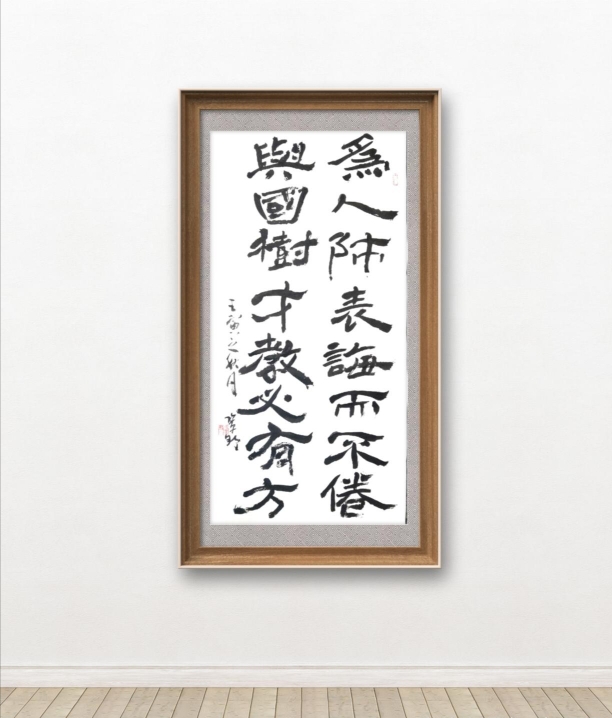 為人師表誨而不倦
與國樹才教必有方
壬寅之秋月